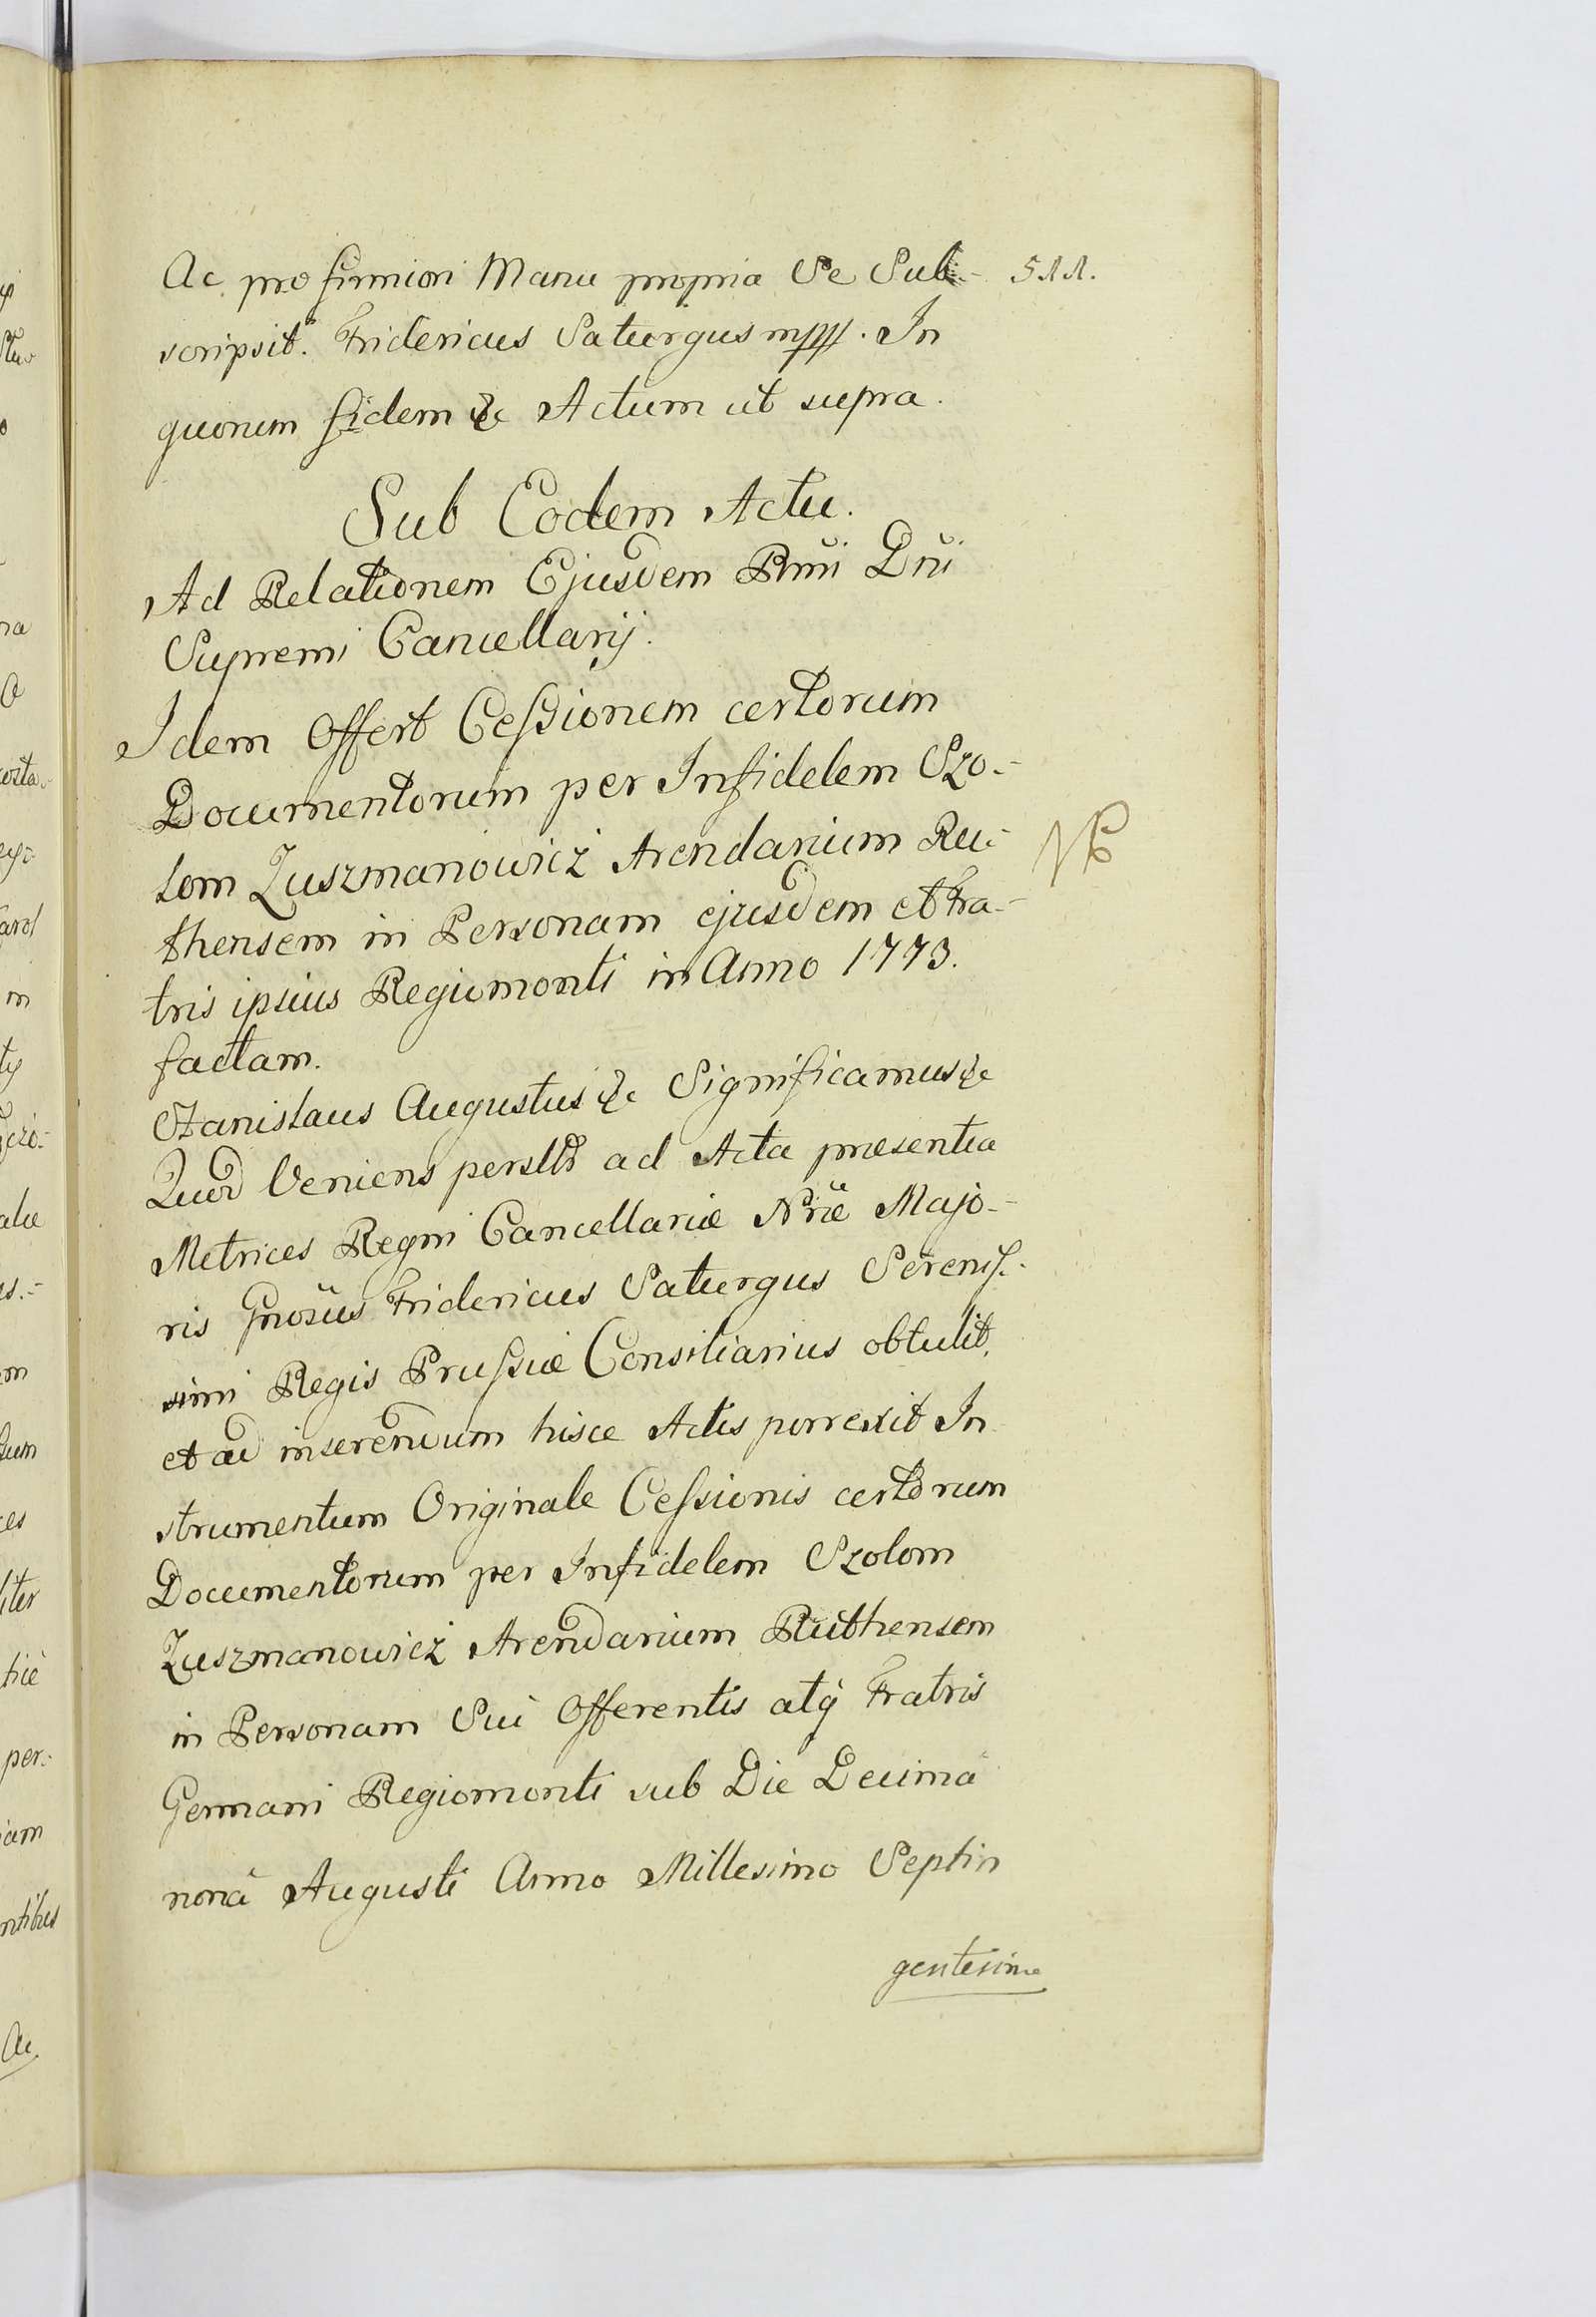 Ac pro firmiori Manu propria Se Sub- 511.
scripsit. Fridericus Saturgus mpp. In
quorum fidem &c Actum ut supra.
Sub Eodem Actu.
Ad Relationem Ejusdem Rmi Dni
Supremi Cancellarij.
Idem Offert Cessionem certorum
Documentorum per Infidelem Szo-
lom Zuszmanowicz Arendarium Ru-
thensem in Personam ejusdem et Fra-
tris ipsius Regiomonti in Anno 1773.
factam.
Stanislaus Augustus &c Significamus &c
Quod Veniens persllr ad Acta praesentia
Metrices Regni Cancellariae Nrae Majo-
ris Gnosus Fridericus Saturgus Sereniss-
simi Regis Prussiae Consiliarius obtulit,
et ad inserendum hisce Actis porrexit In
strumentum Originale Cessionis certorum
Documentorum per Infidelem Szolom
Zuszmanowicz Arendarium Ruthensem
in Personam Sui Offerentis atq Fratris
Germani Regiomonti sub Die Decima
nona Augusti Anno Millesimo Septin
gentesimo